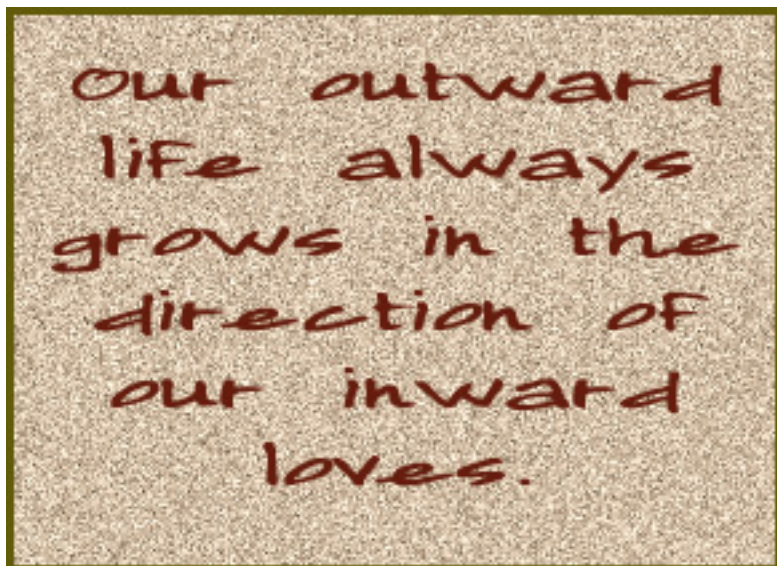 Our outward
life always
grows in the
direction of
our inward
loves.